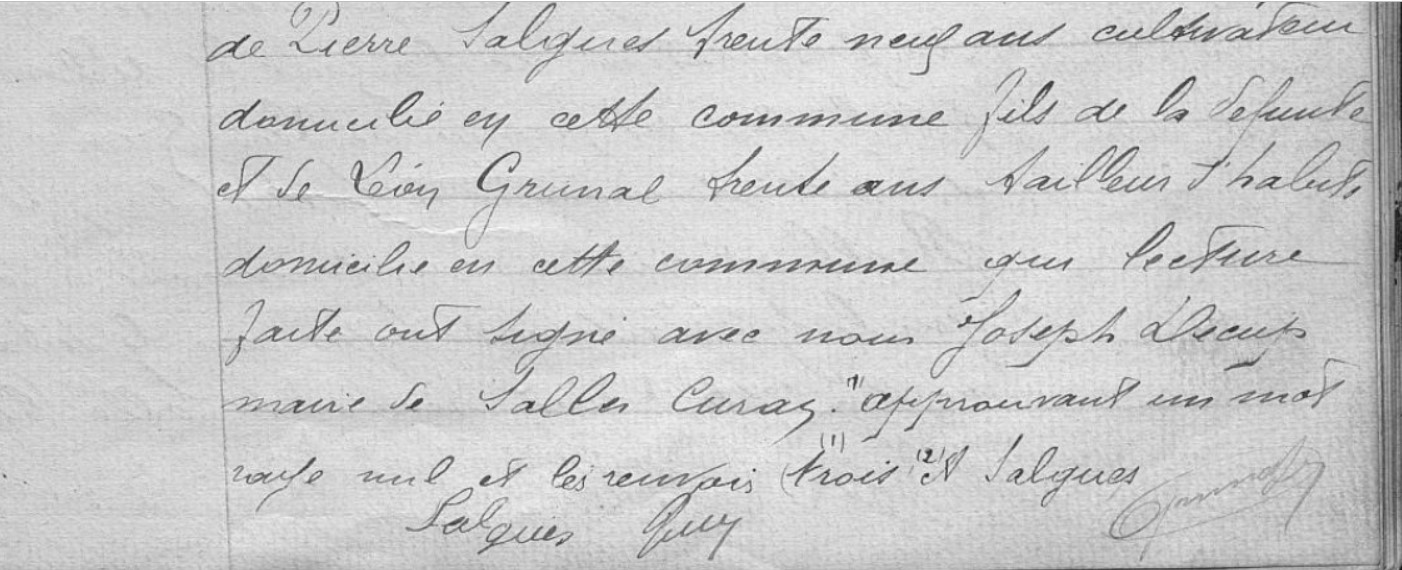 de Pierre Salgues trente neuf ans cultivateur
domicilié en cette commune fils de la défunte
et de Léon Grimal trente ans tailleur d'habits
domicilié en cette commune qui lecture
faite ont signé avec nous Joseph Decup
maire de Salles Curan. (1) approuvant un mot
rayé nul et les renvois (1) trois (2) et Salgues
Salgues